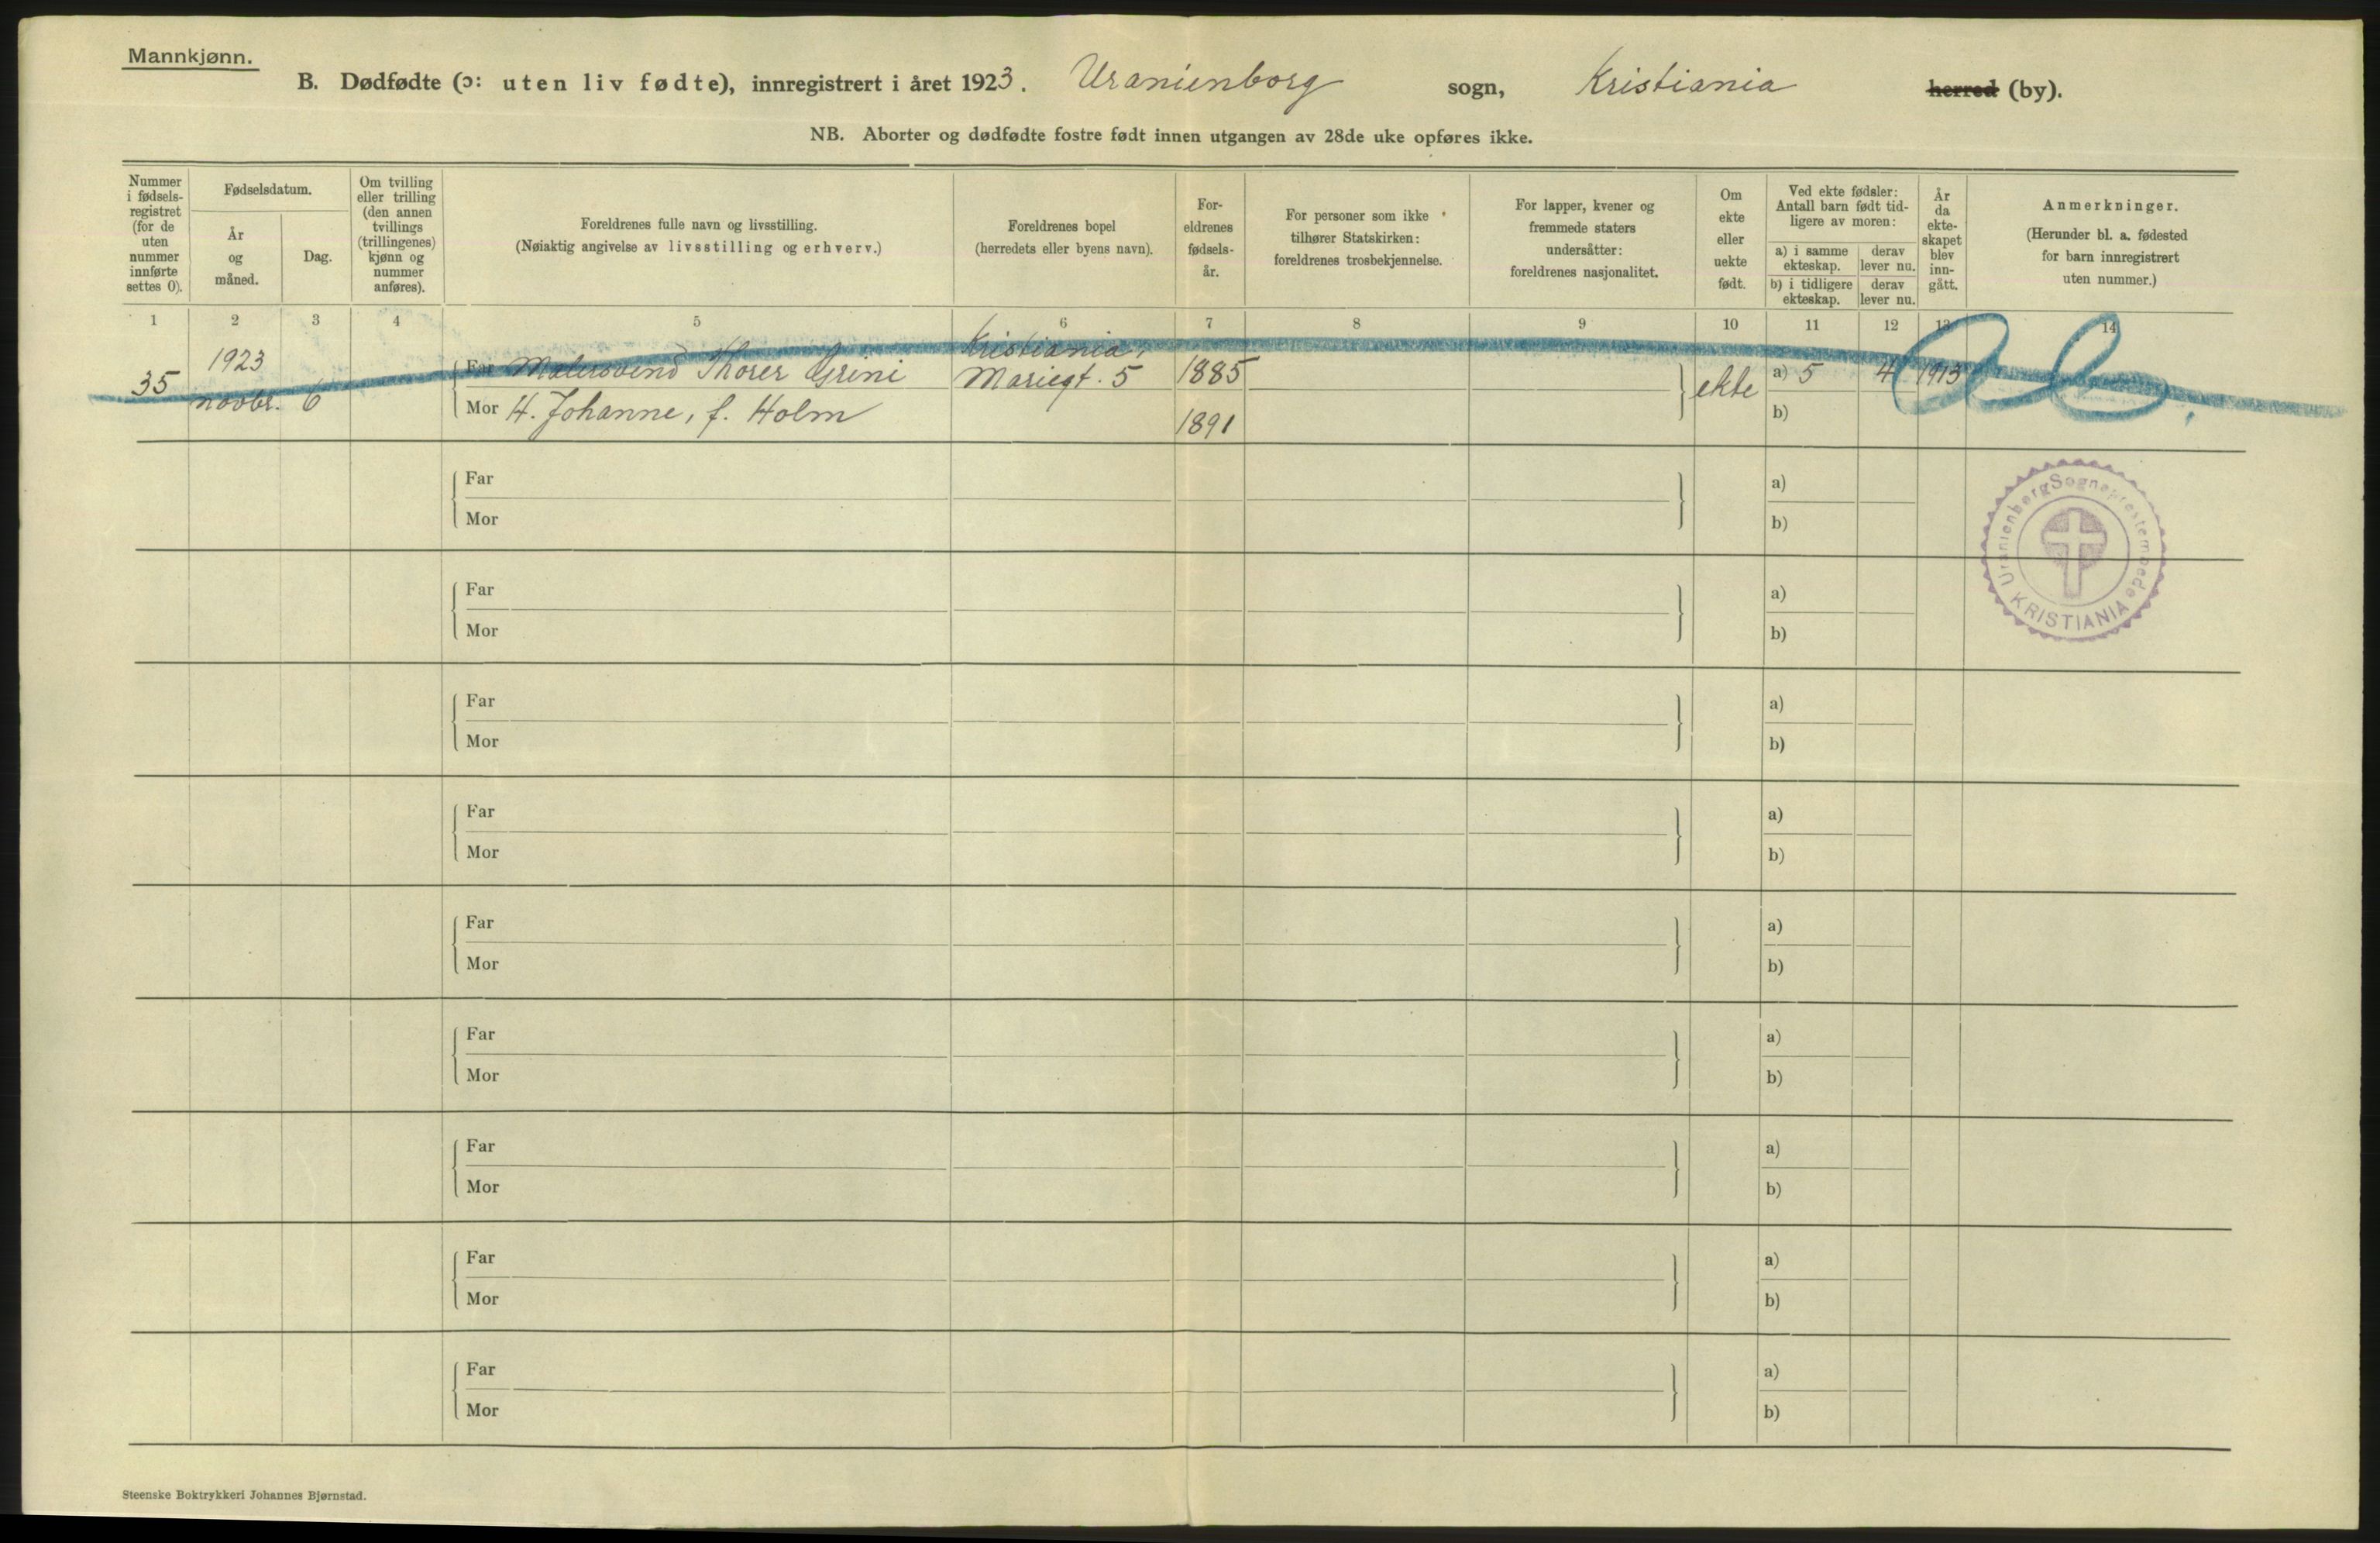 Mannkjønn.
B. Dødfødte (ɔ: uten liv fødte), innregistrert i året 1923. Uranienborg sogn, Kristiania herred (by).
NB. Aborter og dødfødte fostre født innen utgangen av 28de uke opføres ikke.
Nummer
i fødsels-
registret
(for de
uten
nummer
innførte
settes 0).
Fødselsdatum.
År
og
måned.
Dag.
Om tvilling
eller trilling
(den annen
tvillings
(trillingenes)
kjønn og
nummer
anføres).
Foreldrenes fulle navn og livsstilling.
(Nøiaktig angivelse av livsstilling og erhverv.)
Foreldrenes bopel
(herredets eller byens navn).
For-
eldrenes
fødsels-
år.
For personer som ikke
tilhører Statskirken:
foreldrenes trosbekjennelse.
For lapper, kvener og
fremmede staters
undersåtter:
foreldrenes nasjonalitet.
Om
ekte
eller
uekte
født.
Ved ekte fødsler:
Antall barn født tid-
ligere av moren:
a) i samme
ekteskap.
derav
lever nu.
b) i tidligere
ekteskap.
derav
lever nu.
År
da
ekte-
skapet
blev
inn-
gått.
Anmerkninger.
(Herunder bl. a. fødested
for barn innregistrert
uten nummer.)
1 2 3 4 5 6 7 8 9 10 11 12 13 14
35
1923
novbr. 6
Far Malersvend Thorer Grini
Kristiania,
Mariegt. 5
1885
ekte
a) 5 4 1913
Mor H. Johanne, f. Holm
1891
b)
Far
a)
Mor
b)
Uranienborg Sogneprestembede
KRISTIANIA
Far
a)
Mor
b)
Far
a)
Mor
b)
Far
a)
Mor
b)
Far
a)
Mor
b)
Far
a)
Mor
b)
Far
a)
Mor
b)
Far
a)
Mor
b)
Far
a)
Mor
b)
Steenske Boktrykkeri Johannes Bjørnstad.